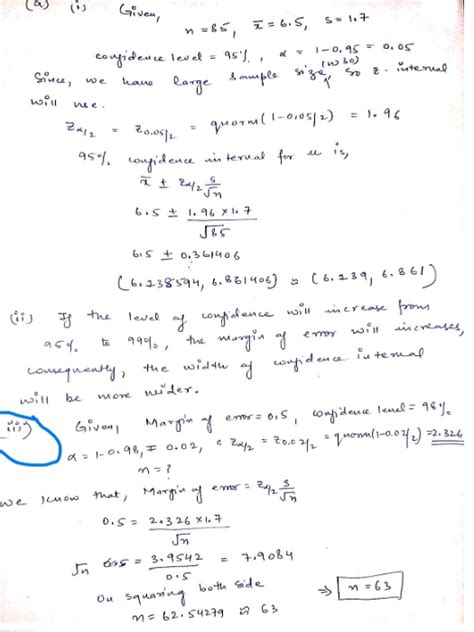 (a) (i) Given,
n = 85, x̄ = 6.5, s = 1.7
confidence level = 95%, α = 1-0.95 = 0.05
Since, we have large sample size (n>30), so z-interval
will use.
Zα/2 = Z0.05/2 = qnorm(1-0.05/2) = 1.96
95% confidence interval for u is,
x̄ ± Zα/2 s/√n
6.5 ± 1.96 × 1.7 / √85
6.5 ± 0.361406
(6.138594, 6.861406) ≈ (6.139, 6.861)
(ii) If the level of confidence will increase from
95% to 99%, the margin of error will increases,
consequently, the width of confidence interval
will be more wider.
(iii) Given, Margin of error = 0.5, confidence level = 98%
α = 1-0.98, = 0.02, Zα/2 = Z0.02/2 = qnorm(1-0.02/2) = 2.326
n = ?
we know that, Margin of error = Zα/2 s/√n
0.5 = 2.326 × 1.7 / √n
√n = 3.9542 / 0.5 = 7.9084
On squaring both side
n = 62.54279 ≈ 63 ⇒ n = 63